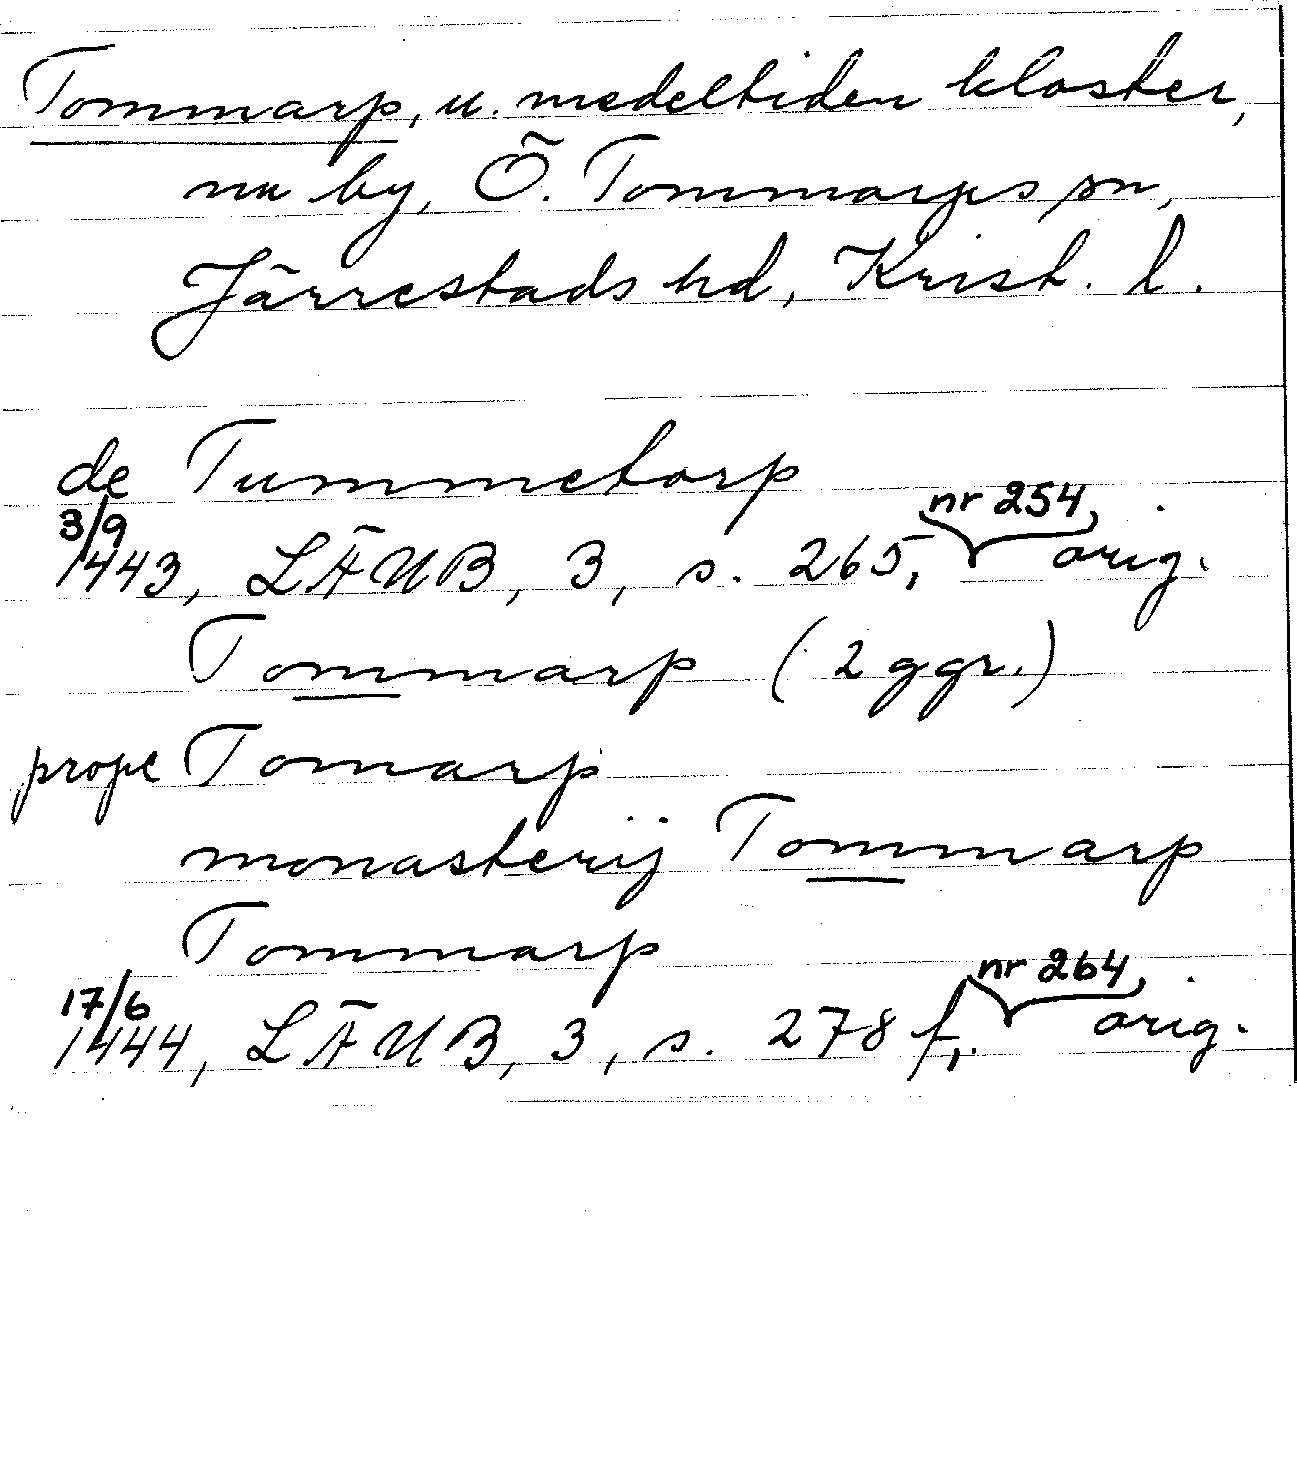 Tommarp, u. medeltiden kloster,
nu by, Ö. Tommarps sn,
Järrestads hd, Krist. l.
de Tummetorp
3/9 nr 254
1443, LÄUB, 3, s. 265, orig.
Tommarp (2 ggr.)
prope Tomarp
monasterij Tommarp
Tommarp
17/6 nr 264
1444, LÄUB, 3, s. 278 f,. orig.